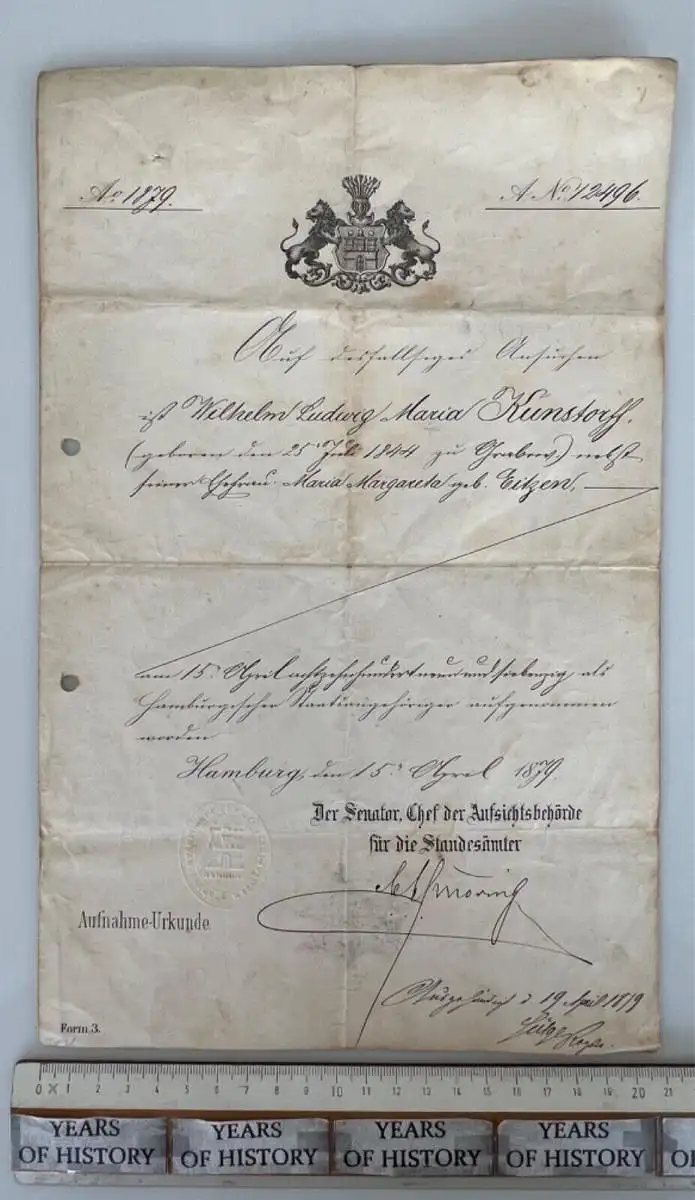 Ao 1879.
A. No. 12496.
Auf desfallsiges Ansuchen
ist Wilhelm Ludwig Maria Kunstorff,
(geboren den 25. Juli 1844 zu Grabow) nebst
seiner Ehefrau Maria Margareta geb. Eitzen,
am 15. April achtzehnhundertneunundsiebenzig als
Hamburgischer Staatsangehöriger aufgenommen
worden.
Hamburg, den 15. April 1879.
Der Senator, Chef der Aufsichtsbehörde
für die Standesämter
Aufnahme-Urkunde.
Ausgehändigt d. 19 April 1879
Form. 3.
0 1 2 3 4 5 6 7 8 9 10 11 12 13 14 15 16 17 18 19 20 21
YEARS OF HISTORY
YEARS OF HISTORY
YEARS OF HISTORY
YEARS OF HISTORY